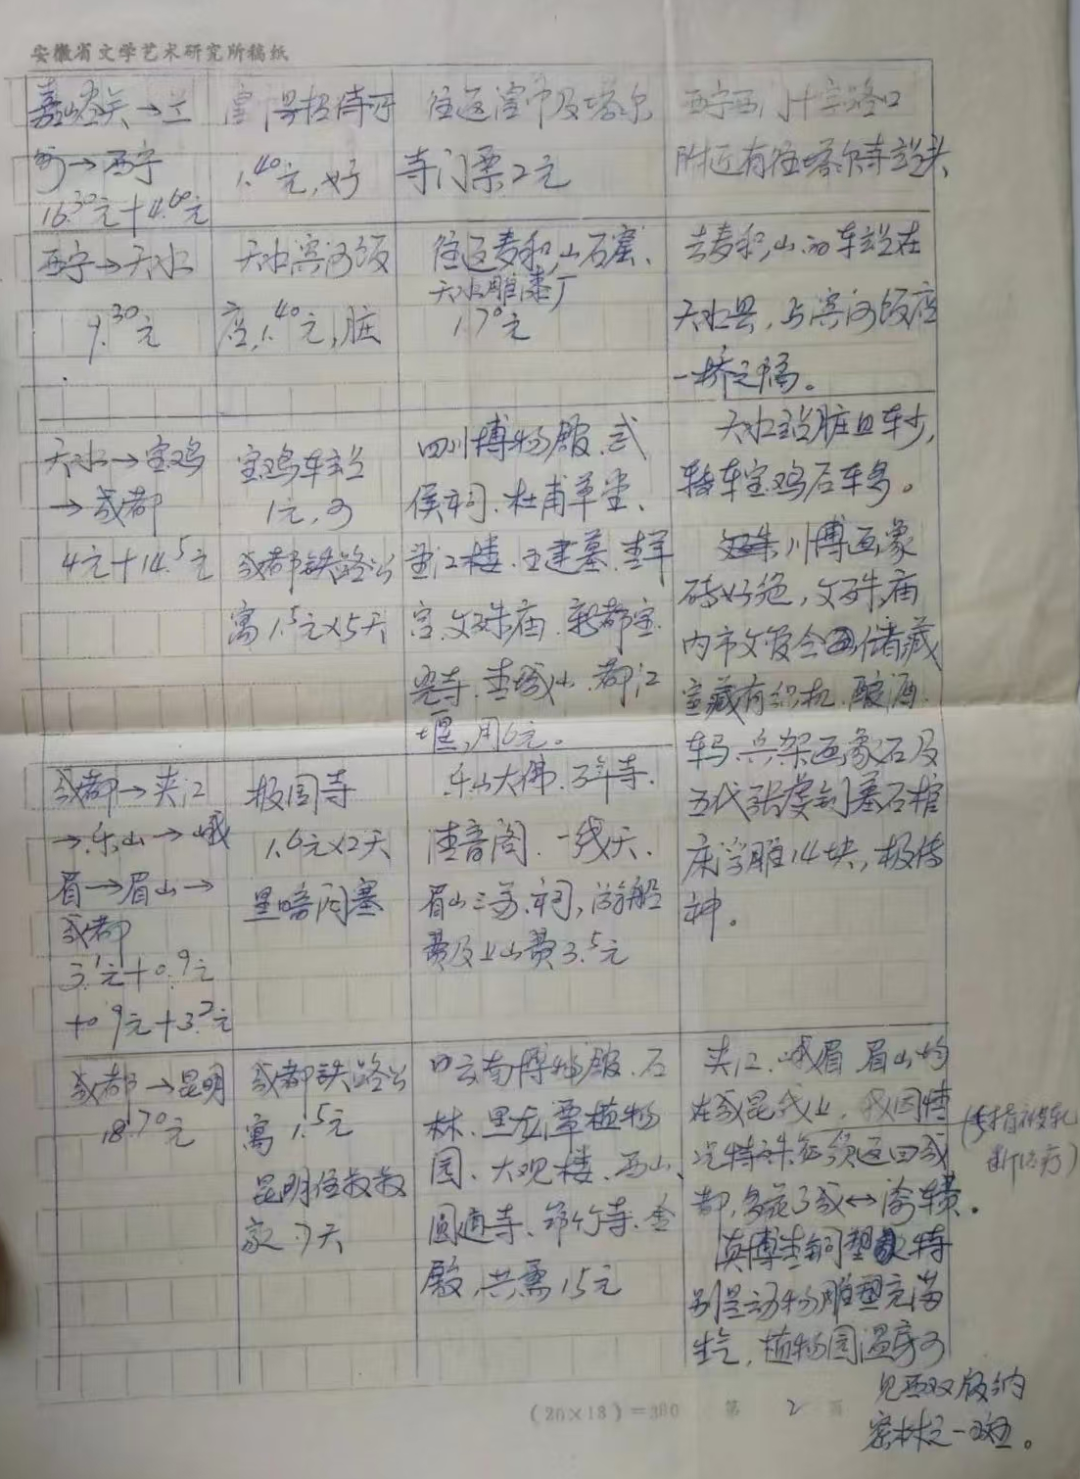 安徽省文学艺术研究所稿纸
嘉峪关→兰
州→西宁
16.30元+4.60元
招待所
1.40元,好
往返 及塔尔
寺门票2元
西宁西门十字路口
附近有往塔尔寺站头
西宁→天水
9.30元
天水滨河饭
店,1.40元,脏
往返麦积山石窟、
天水雕漆厂
1.70元
去麦积山的车站在
天水县,与滨河饭店
一桥之隔。
天水→宝鸡
→成都
4元+14.5元
宝鸡车站
1元,可
成都铁路公
寓1.5元×5天
四川博物馆.武
侯祠.杜甫草堂、
望江楼.王建墓.青羊
宫.文殊庙.新都宝
光寺.青城山.都江
堰,用6元。
天水站脏且车少,
转车宝鸡后车多。
川博画象
砖好绝,文殊庙
内市文管会 储藏
室藏有织机.酿酒.
车马.兵架画象石及
五代张虔钊墓石棺
床浮雕14块,极传
神。
成都→夹江
→乐山→峨
眉→眉山→
成都
3.1元+0.9元
+0.9元+3.2元
报国寺
1.6元×2天
黑暗闭塞
乐山大佛.万年寺.
清音阁.一线天.
眉山三苏祠,游船
费及上山费3.5元
成都→昆明
18.70元
成都铁路公
寓1.5元
昆明住敖敖
家.7天
云南博物馆.石
林.黑龙潭植物
园、大观楼.西山、
圆通寺、筇竹寺.金
殿,共需15元
夹江.峨眉.眉山均
在成昆线上,我因情
况特殊须返回成
都,多花了成↔ 车费。
滇博青铜塑 特
别是动物雕塑充满
生气,植物园温房可
见西双版纳
密林之一斑。
(20×18)=360 第 2 页